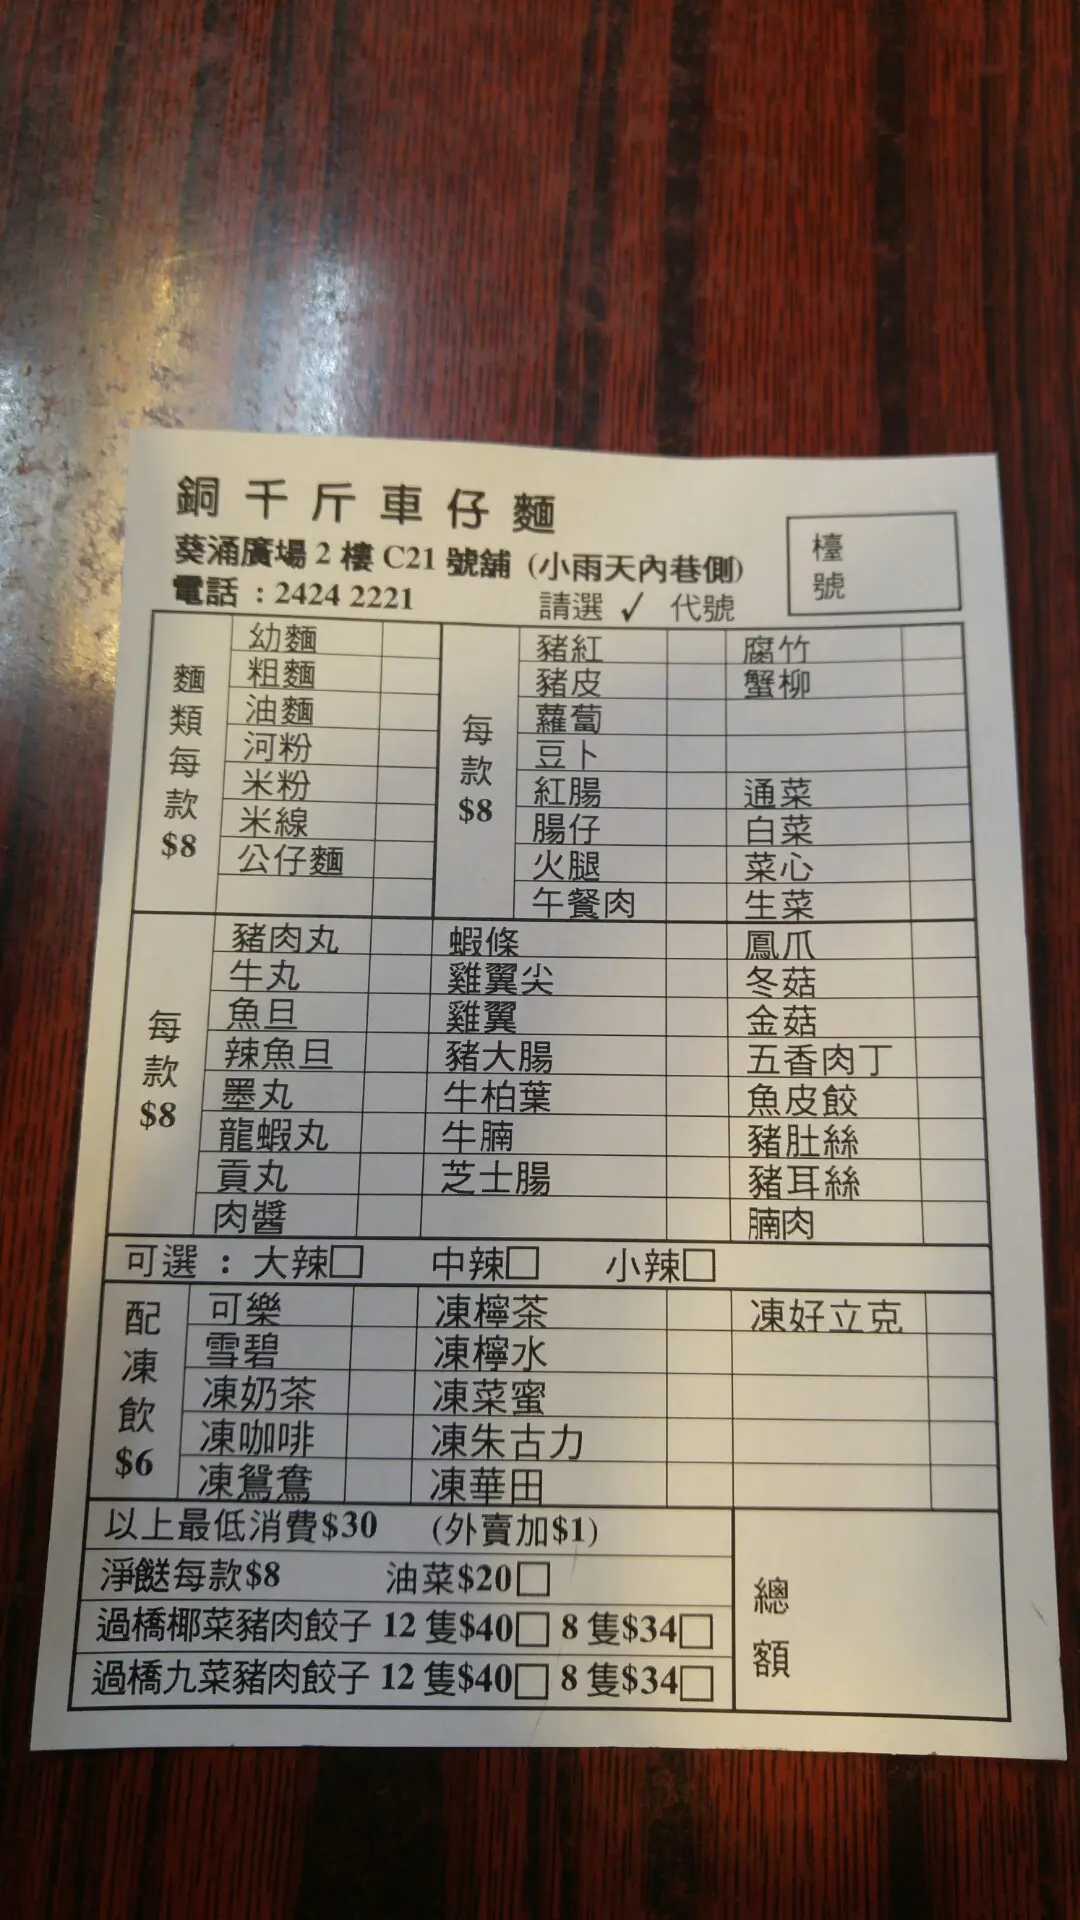 銅千斤車仔麵
葵涌廣場 2 樓 C21 號舖 (小雨天內巷側)
電話 : 2424 2221 請選 ✓ 代號
檯號
麵類每款$8
幼麵
粗麵
油麵
河粉
米粉
米線
公仔麵
每款$8
豬紅 腐竹
豬皮 蟹柳
蘿蔔
豆卜
紅腸 通菜
腸仔 白菜
火腿 菜心
午餐肉 生菜
每款$8
豬肉丸 蝦條 鳳爪
牛丸 雞翼尖 冬菇
魚旦 雞翼 金菇
辣魚旦 豬大腸 五香肉丁
墨丸 牛柏葉 魚皮餃
龍蝦丸 牛腩 豬肚絲
貢丸 芝士腸 豬耳絲
肉醬 腩肉
可選 : 大辣□ 中辣□ 小辣□
配凍飲$6
可樂 凍檸茶 凍好立克
雪碧 凍檸水
凍奶茶 凍菜蜜
凍咖啡 凍朱古力
凍鴛鴦 凍華田
以上最低消費$30 (外賣加$1)
淨餸每款$8 油菜$20□
過橋椰菜豬肉餃子 12 隻$40□ 8 隻$34□
過橋九菜豬肉餃子 12 隻$40□ 8 隻$34□
總額